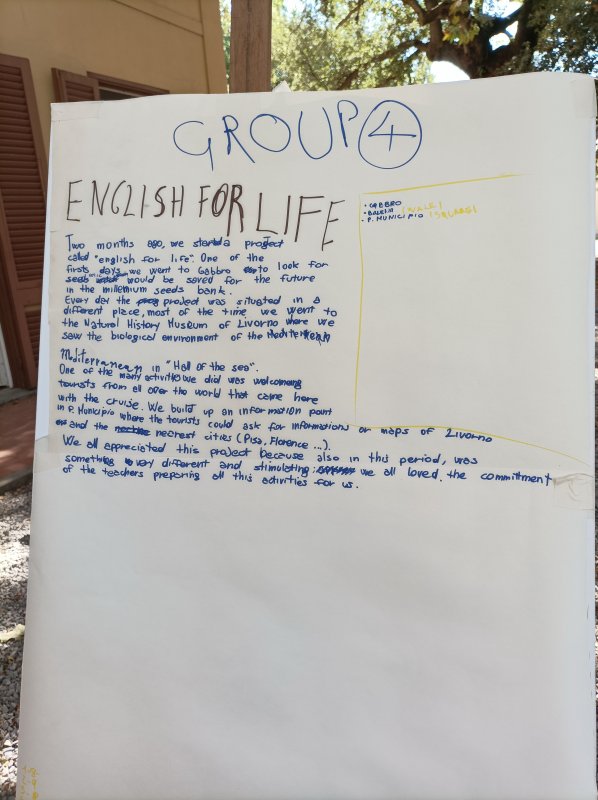 GROUP 4
ENGLISH FOR LIFE
Two months ago, we started a project
called "english for life". One of the
firsts days we went to Gabbro to look for
seeds would be saved for the future
in the millenium seeds bank.
Every day the project was situated in a
different place, most of the time we went to
the Natural History Museum of Livorno where we
saw the biological environment of the Mediterrean
Mediterranean in "Hall of the sea".
One of the many activities we did was welcoming
tourists from all over the world that came here
with the cruise. We build up an information point
in P. Municipio where the tourists could ask for informations or maps of Livorno
and the nearest cities (Pisa, Florence ...).
We all appreciated this project because also in this period, was
something very different and stimulating; we all loved the commitment
of the teachers preparing all this activities for us.
• GABBRO
• BALENA
• P. MUNICIPIO (SQUARE)